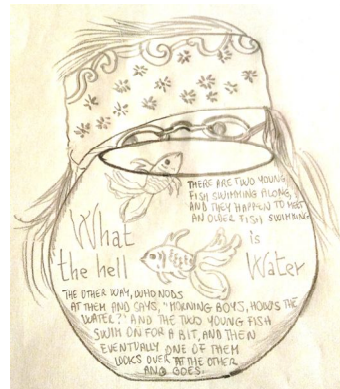 THERE ARE TWO YOUNG
FISH SWIMMING ALONG,
AND THEY HAPPEN TO MEET
AN OLDER FISH SWIMMING
What is
the hell Water
THE OTHER WAY, WHO NODS
AT THEM AND SAYS, "MORNING BOYS, HOW'S THE
WATER?" AND THE TWO YOUNG FISH
SWIM ON FOR A BIT, AND THEN
EVENTUALLY ONE OF THEM
LOOKS OVER AT THE OTHER
AND GOES.